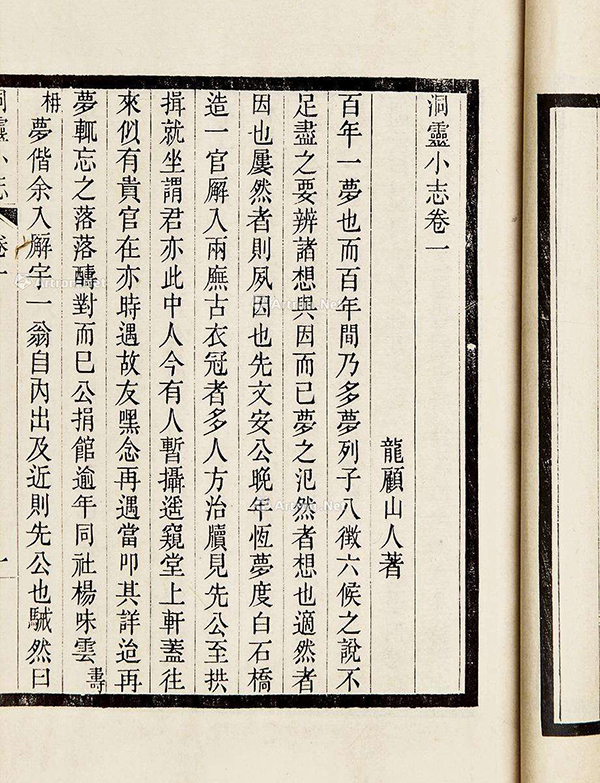 洞靈小志卷一
龍顧山人著
百年一夢也而百年間乃多夢列子八徵六候之說不
足盡之要辨諸想與因而已夢之氾然者想也適然者
因也屢然者則夙因也先文安公晚年恆夢度白石橋
造一官廨入兩廡古衣冠者多人方治牘見先公至拱
揖就坐謂君亦此中人今有人暫攝遙窺堂上軒蓋往
來似有貴官在亦時遇故友嘿念再遇當叩其詳迨再
夢輒忘之落落醻對而已公捐館逾年同社楊味雲壽
枏夢偕余入廨宇一翁自內出及近則先公也駴然曰
洞靈小志 卷一 一